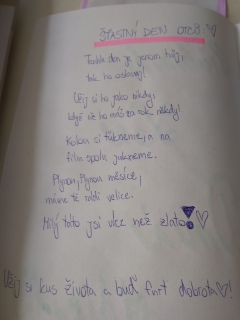 ŠŤASTNÝ DEN OTCŮ:♡
Tenhle den je jenom tvůj,
tak ho oslavuj!
Užij si ho jako nikdy,
když ho máš za rok někdy!
Kolou si ťukneme, a na
film spolu juknem.
Plynou, Plynou měsíce,
máme tě rádi velice.
Milý táto jsi víc než zlato!♡
Užij si kus života a buď furt dobrota♡!